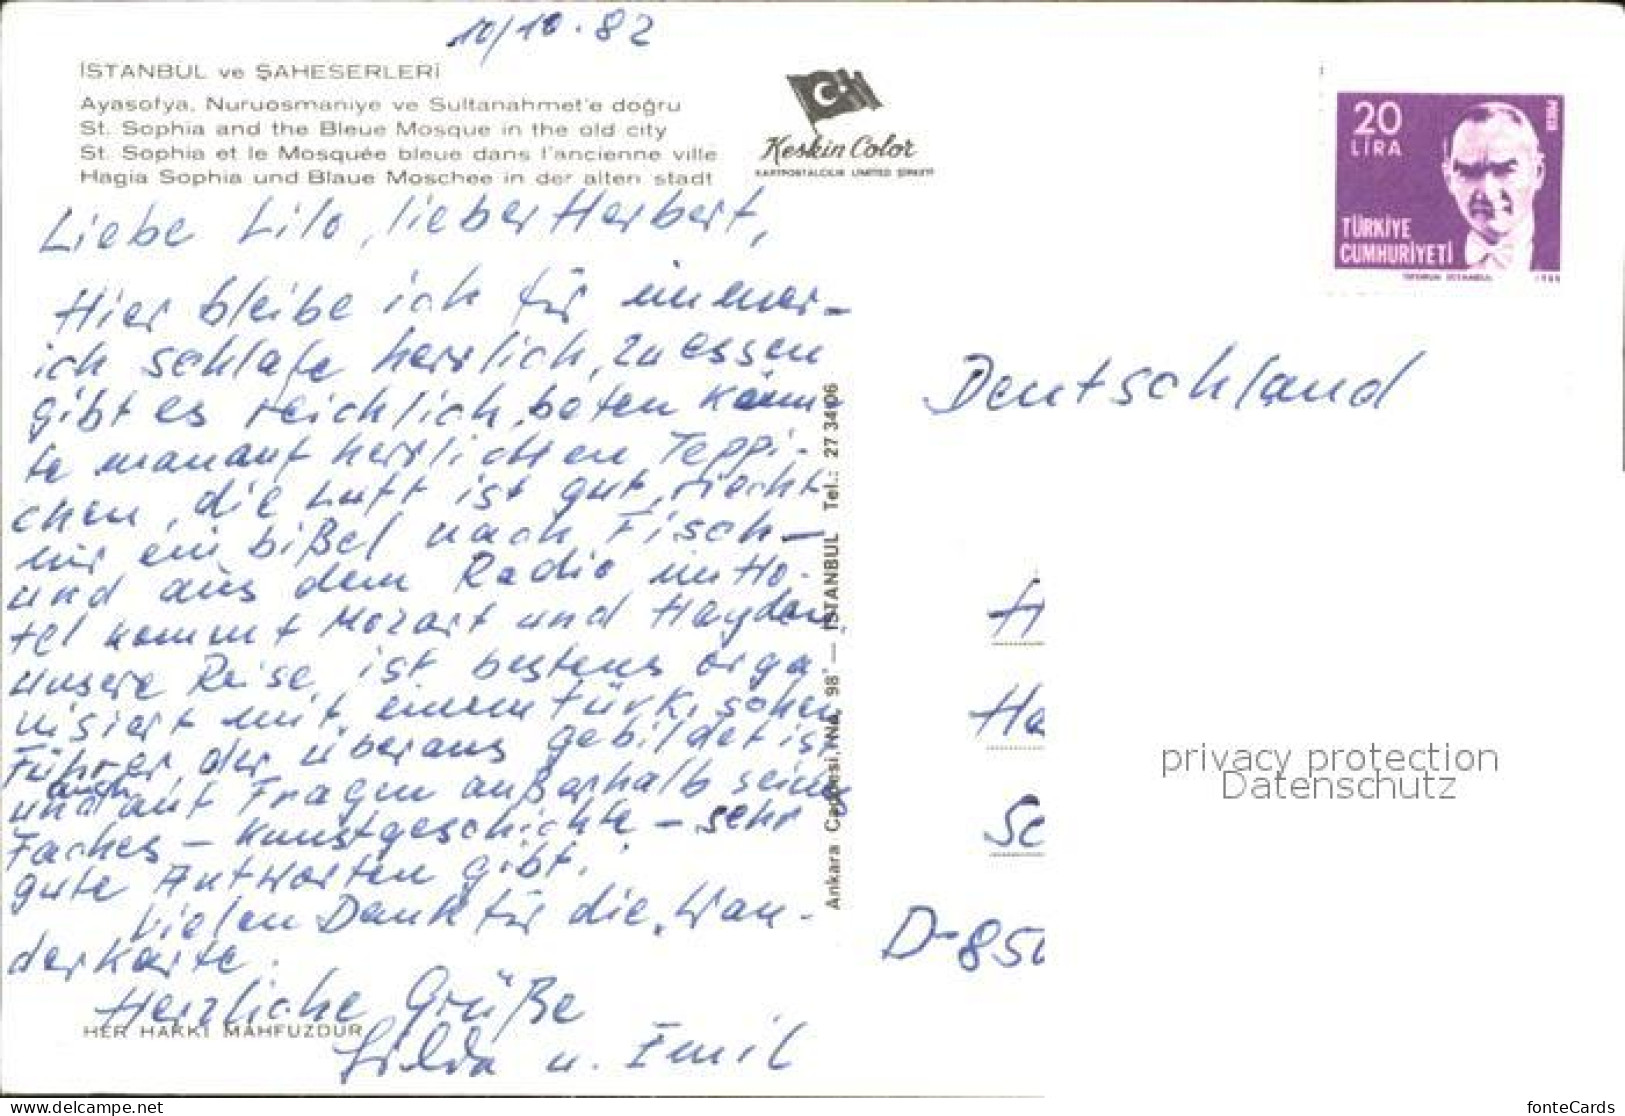 10/10.82
İSTANBUL ve ŞAHESERLERİ
Ayasofya, Nuruosmaniye ve Sultanahmet'e doğru
St. Sophia and the Bleue Mosque in the old city
St. Sophia et le Mosquée bleue dans l'ancienne ville
Hagia Sophia und Blaue Moschee in der alten stadt
Keskin Color
KARTPOSTALCILIK LIMITED ŞİRKETİ
20
LİRA
TÜRKİYE
CUMHURİYETİ
Liebe Lilo, lieber Herbert,
Hier bleibe ich für immer –
ich schlafe herrlich, zu essen
gibt es reichlich, beten könn-
te man auf herrlichen Teppi-
chen, die Luft ist gut, riecht
nur ein bißel nach Fisch –
und aus dem Radio im Ho-
tel kommt Mozart und Haydn.
Unsere Reise ist bestens orga-
nisiert mit einem türkischen
Führer, der überaus gebildet ist
und auch auf Fragen außerhalb seines
Faches – Kunstgeschichte – sehr
gute Antworten gibt.
Vielen Dank für die Wan-
derkarte.
Herzliche Grüße
Hilda u. Emil
HER HAKKI MAHFUZDUR
Ankara Caddesi, No. 98 — İSTANBUL Tel.: 27 34 06
Deutschland
H
Ha
Sc
D-850
privacy protection
Datenschutz
www.delcampe.net
fonteCards